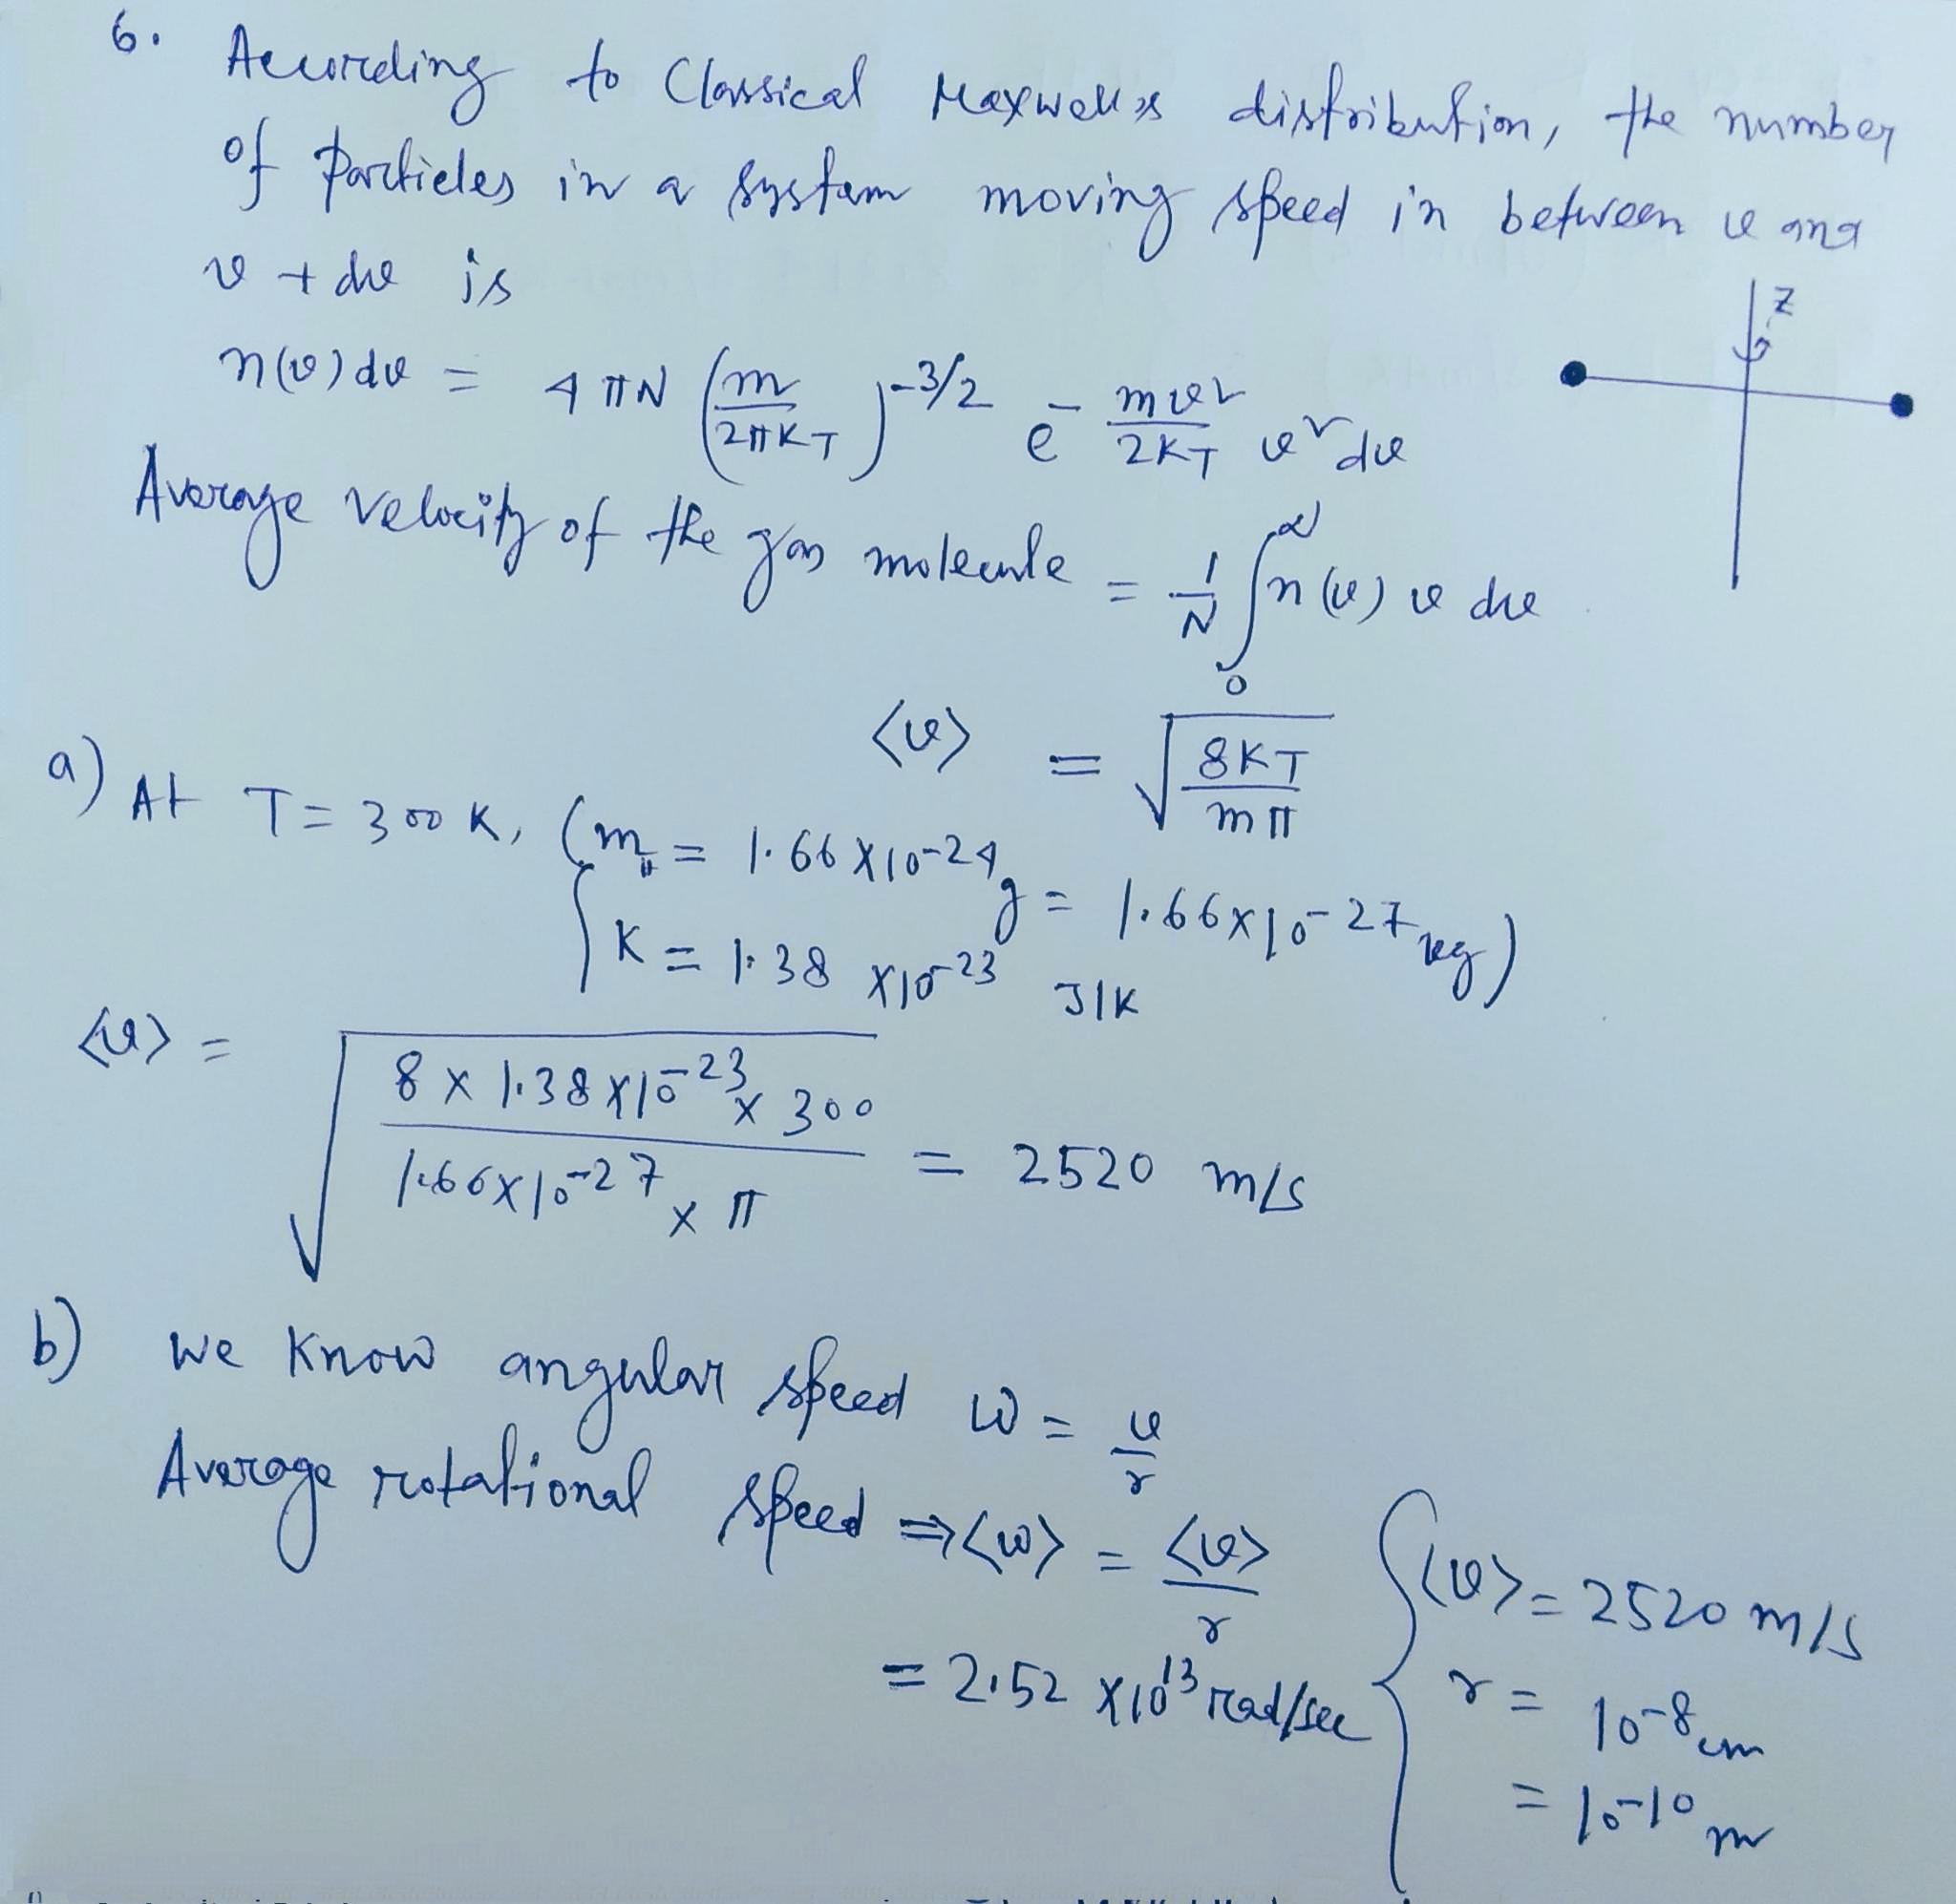 6. According to Classical Maxwell's distribution, the number
of particles in a system moving speed in between v and
v + dv is
z
n(v)dv = 4πN (m/2πKT)^-3/2 e^-mv²/2KT v² dv
Average velocity of the gas molecule = 1/N ∫₀^∞ n(v) v dv
<v> = √(8KT/mπ)
a) At T = 300 K, (m_H = 1.66 X10^-24 g = 1.66×10^-27 kg)
K = 1.38 X10^-23 J/K
<v> = √(8 × 1.38 X10^-23 × 300 / 1.66×10^-27 × π) = 2520 m/s
b) We know angular speed ω = v/r
Average rotational speed ⇒ <ω> = <v>/r
= 2.52 X10^13 rad/sec
<v> = 2520 m/s
r = 10^-8 cm
= 10^-10 m